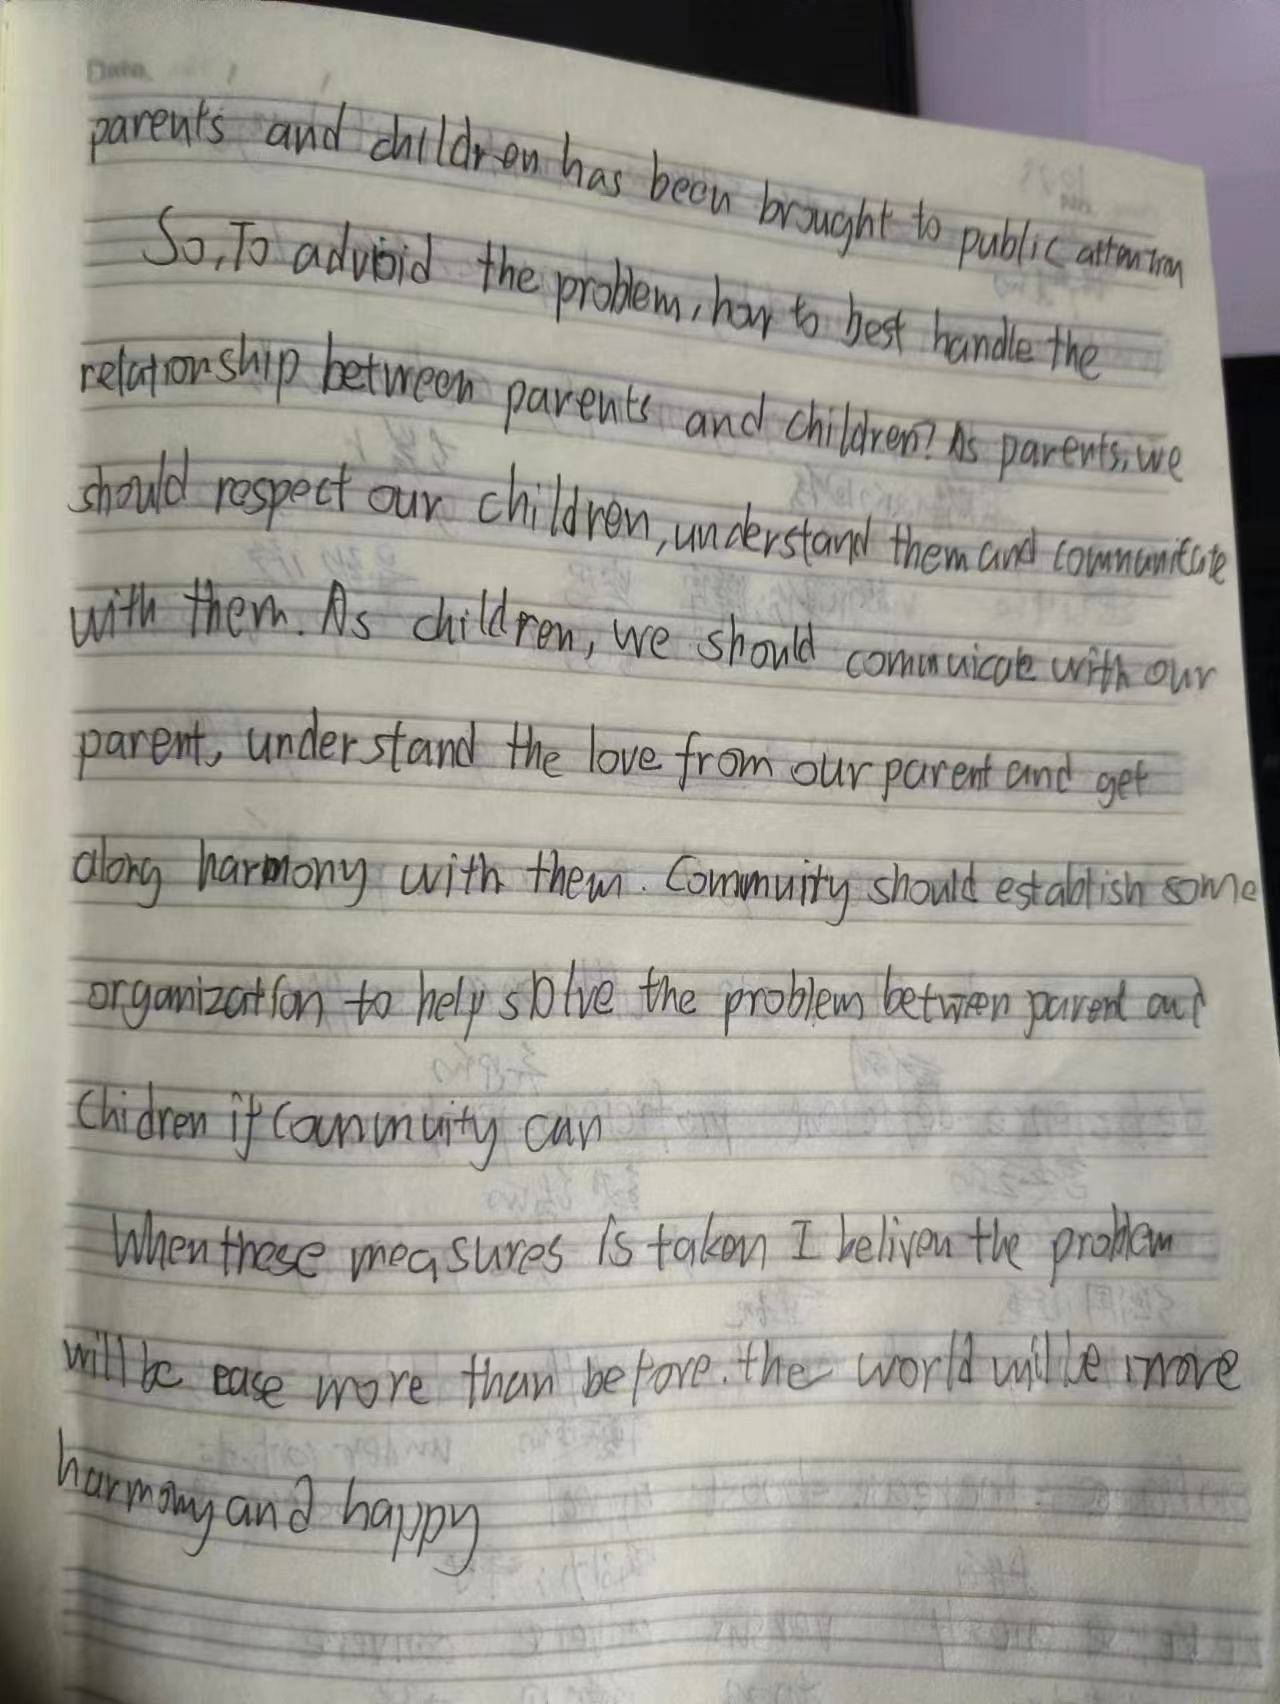 Date.
parents and children has been brought to public attention
So, To advioid the problem, how to best handle the
relationship between parents and children? As parents, we
should respect our children, understand them and communitcate
with them. As children, we should commuicate with our
parent, understand the love from our parent and get
along harmony with them. Commuity should establish some
organization to help solve the problem between parent and
Chidren if Coummuity can
When these measures is taken I beliven the problem
will be ease more than before. the world will be more
harmony and happy